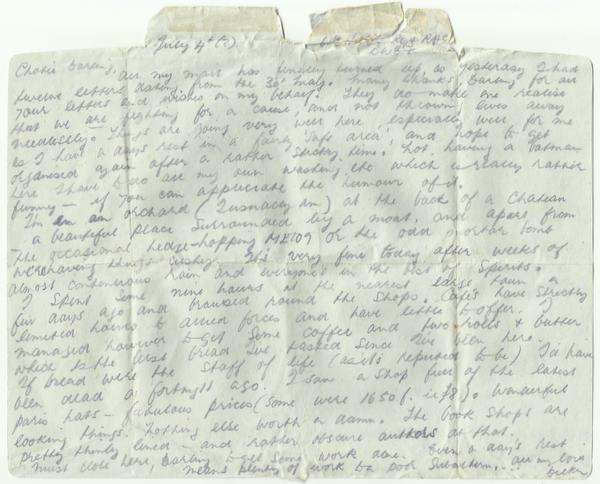 July 4th (?)
Cherie Darling,
all my mail has finally turned up so yesterday I had
twelve letters dating from the 30th May. Many thanks, Darling for all
your letters and wishes on my behalf. They do make one realise
that we are fighting for a cause, and not thrown lives away
needlessly - Things are going very well here, especially well for me
as I have a days rest in a fairly 'safe area', and hope to get
organised again after a rather sticky time. Not having a batman
here I have to do all my own washing etc which is really rather
funny - if you can appreciate the humour of it.
I'm in an orchard (I usually am) at the back of a Chateau
- a beautiful place surrounded by a moat, and apart from
the occasional hedge-hopping ME109 or the odd mortar bomb
we're having things easy. It's very fine today after weeks of
almost continuous rain and everyone's in the best of spirits.
I spent some nine hours at the nearest large town a
few days ago and browsed round the shops. Cafes have strictly
limited hours to armed forces and have little to offer. I
managed however to get some coffee and two rolls & butter
which is the first bread I've tasted since I've been here.
If bread were the staff of life (as it's reputed to be) I'd have
been dead a fortnight ago. I saw a shop full of the latest
Paris hats - fabulous prices (some were 1650 f. = £8). Wonderful
looking things. Nothing else worth a damn. The book shops are
pretty thinly lined - and rather obscure authors at that.
Must close here, Darling to get some work done. Even a day's rest
means plenty of work to a poor subaltern... all my love